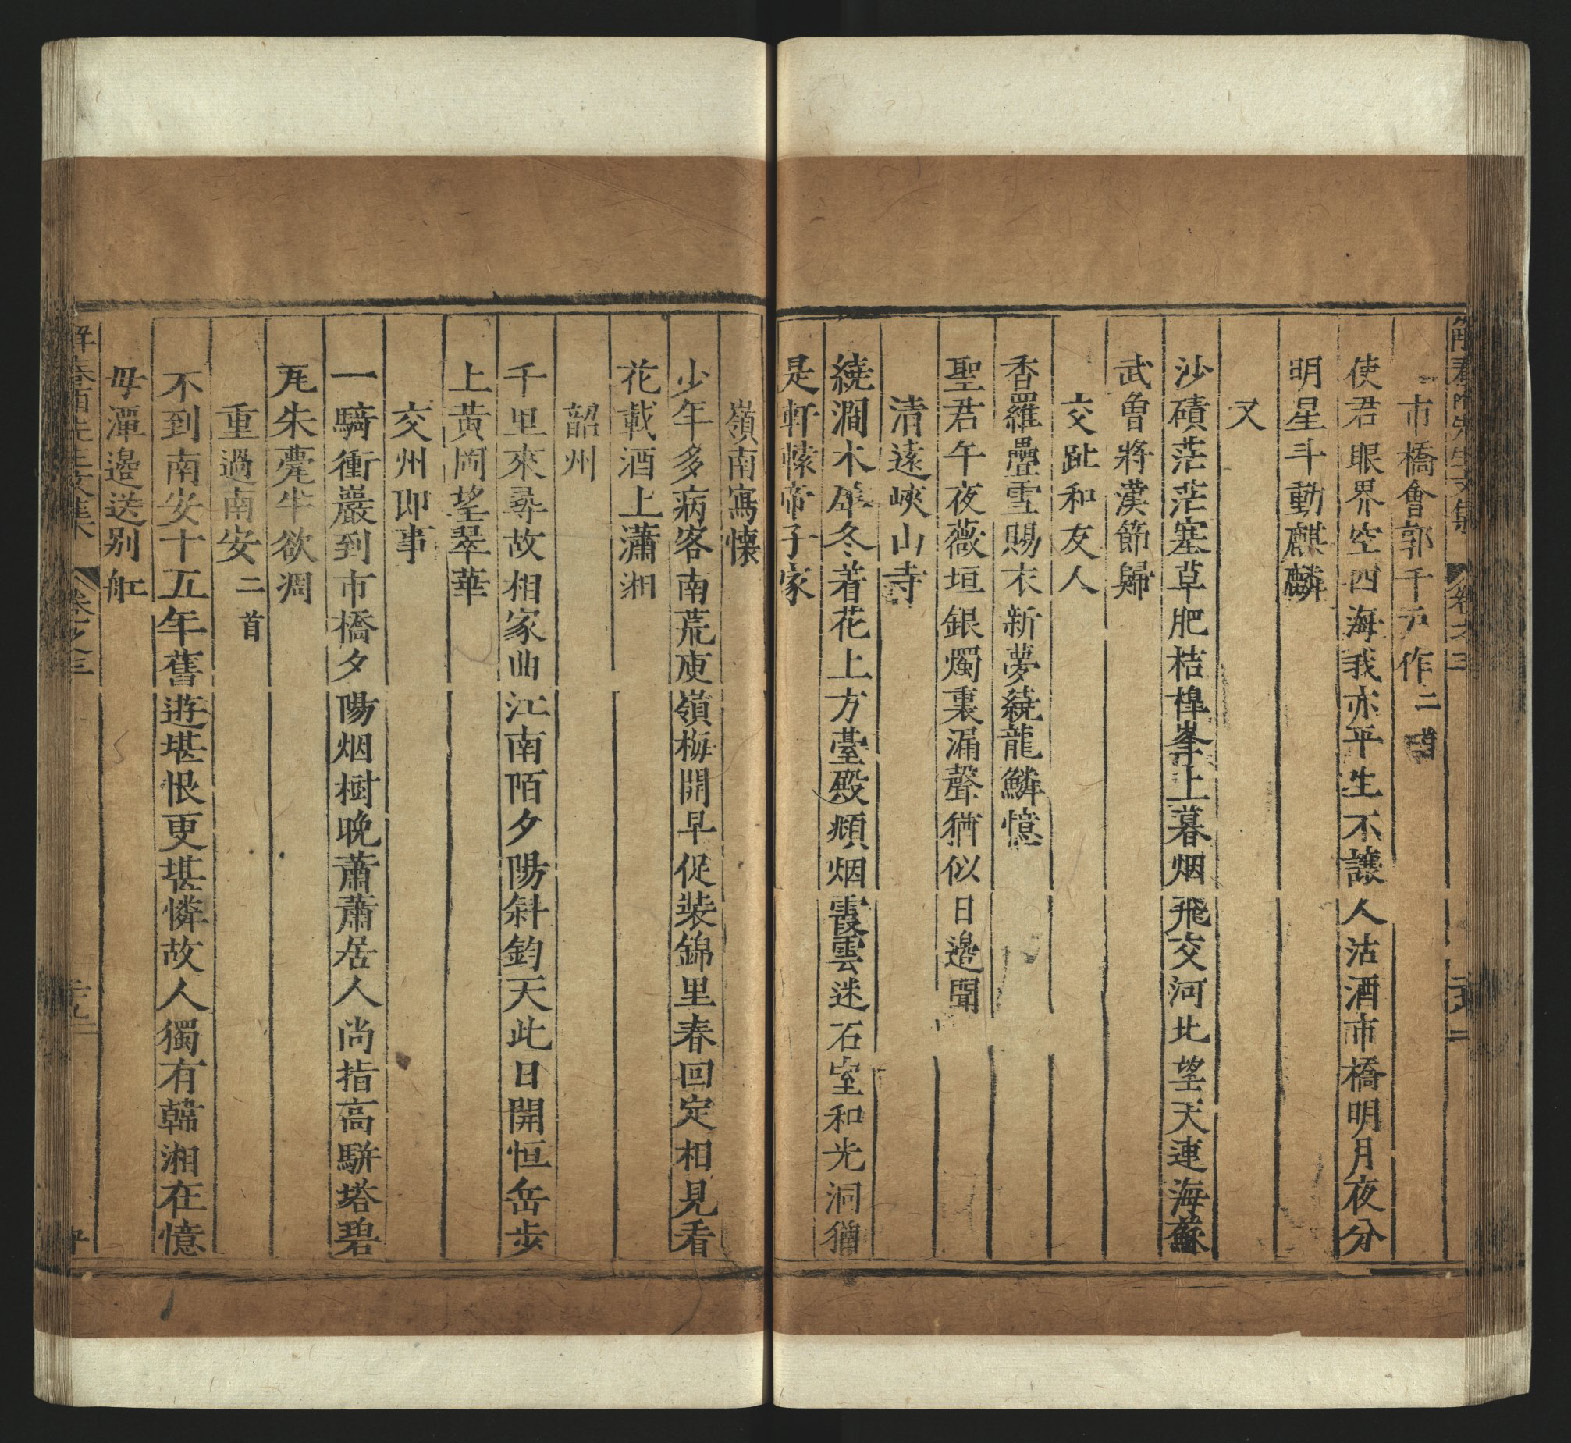 市橋會郭千戶作二首
使君眼界空四海我亦平生不讓人沽酒市橋明月夜分
明星斗動麒麟
又
沙磧茫茫塞草肥桔橰峯上暮烟飛交河北望天連海蘇
武曾將漢節歸
交趾和友人
香羅疊雪賜衣新夢繞龍鱗憶
聖君午夜薇垣銀燭裏漏聲猶似日邊聞
清遠峽山寺
繞澗木犀冬着花上方臺殿頫烟霞雲迷石室和光洞猶
是軒轅帝子家
嶺南寓懷
少年多病客南荒庾嶺梅開早促裝錦里春回定相見看
花載酒上瀟湘
韶州
千里來尋故相家曲江南陌夕陽斜鈞天此日開恒岳步
上黃岡望翠華
交州即事
一騎衝嚴到市橋夕陽烟樹晚蕭蕭居人尚指高駢塔碧
瓦朱甍半欲凋
重過南安二首
不到南安十五年舊遊堪恨更堪憐故人獨有韓湘在憶
毋潭邊送別舡
卷之三